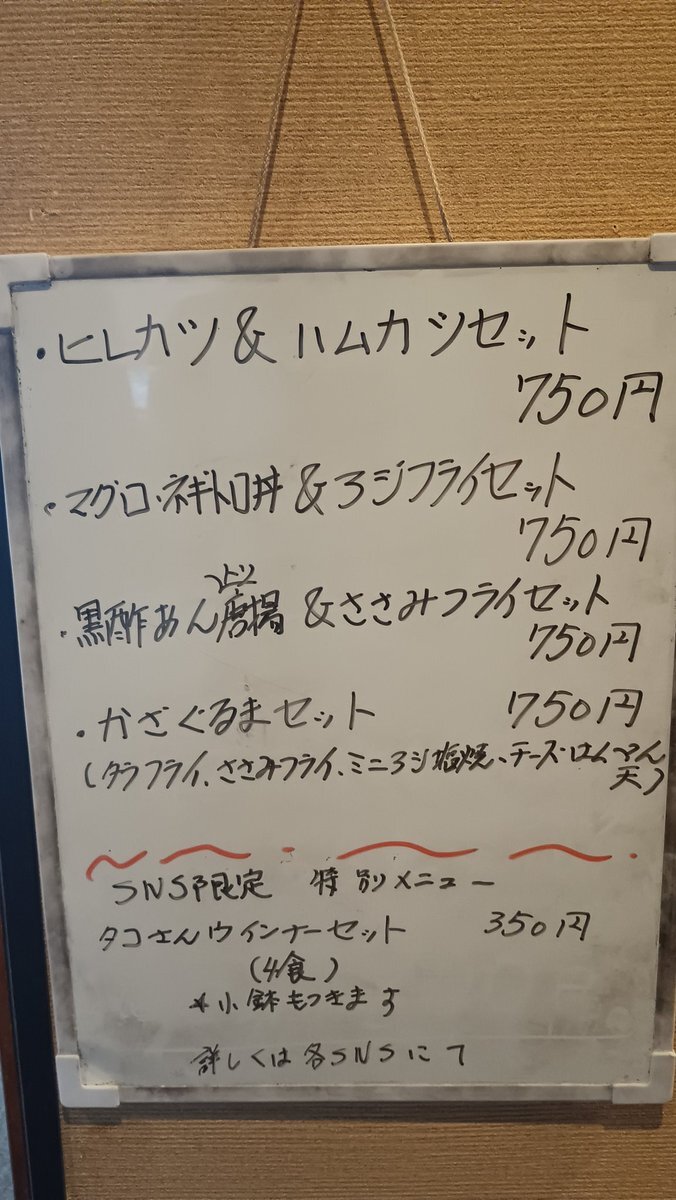 ・ヒレカツ&ハムカツセット
750円
・マグロ・ネギトロ丼&アジフライセット
750円
・黒酢あん唐揚&ささみフライセット
750円
・かざぐるまセット 750円
(タラフライ、ささみフライ、ミニアジ塩焼、チーズはんぺん
天)
SNS限定 特別メニュー
タコさんウインナーセット 350円
(4食)
*小鉢もつきます
詳しくは各SNSにて